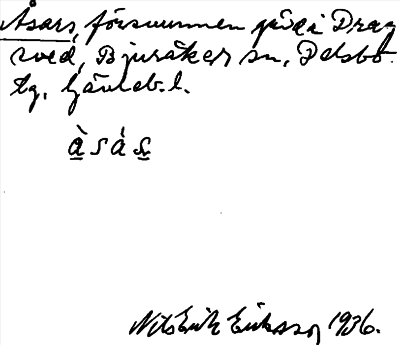 Åsars, försvunnen gård i Drag
sved, Bjuråker sn, Delsbo
tg. Gävleb. l.
Nils Erik Eriksson 1936.